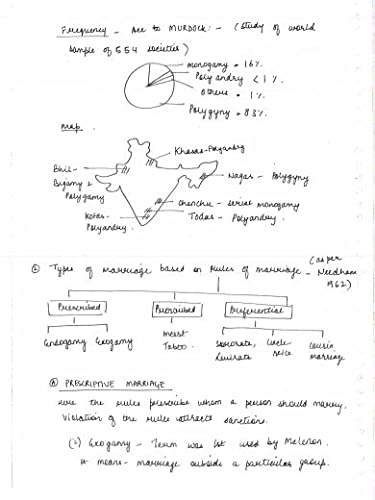 Frequency - Acc to MURDOCK:- (study of world
sample of 554 societies)
monogamy = 16%
Polyandry < 1%
Others = 1%
Polygyny = 83%
Map
Khasas - Polyandry
Bhil -
Bigamy &
Polygamy
Nagas - Polygyny
Chenchu - serial monogamy
Kotas -
Polyandry
Todas - Polyandry
(as per
② Types of marriage based on rules of marriage - Needham
1962)
Prescribed
Proscribed
Preferential
Endogamy
Exogamy
incest
Taboo
Sororate,
Levirate
Uncle
niece
Cousin
marriage
Ⓐ PRESCRIPTIVE MARRIAGE
Here the rules prescribe whom a person should marry.
Violation of the rules attracts sanctions.
(i) Exogamy - Term was 1st used by McLenon.
It means - marriage outside a particular group.